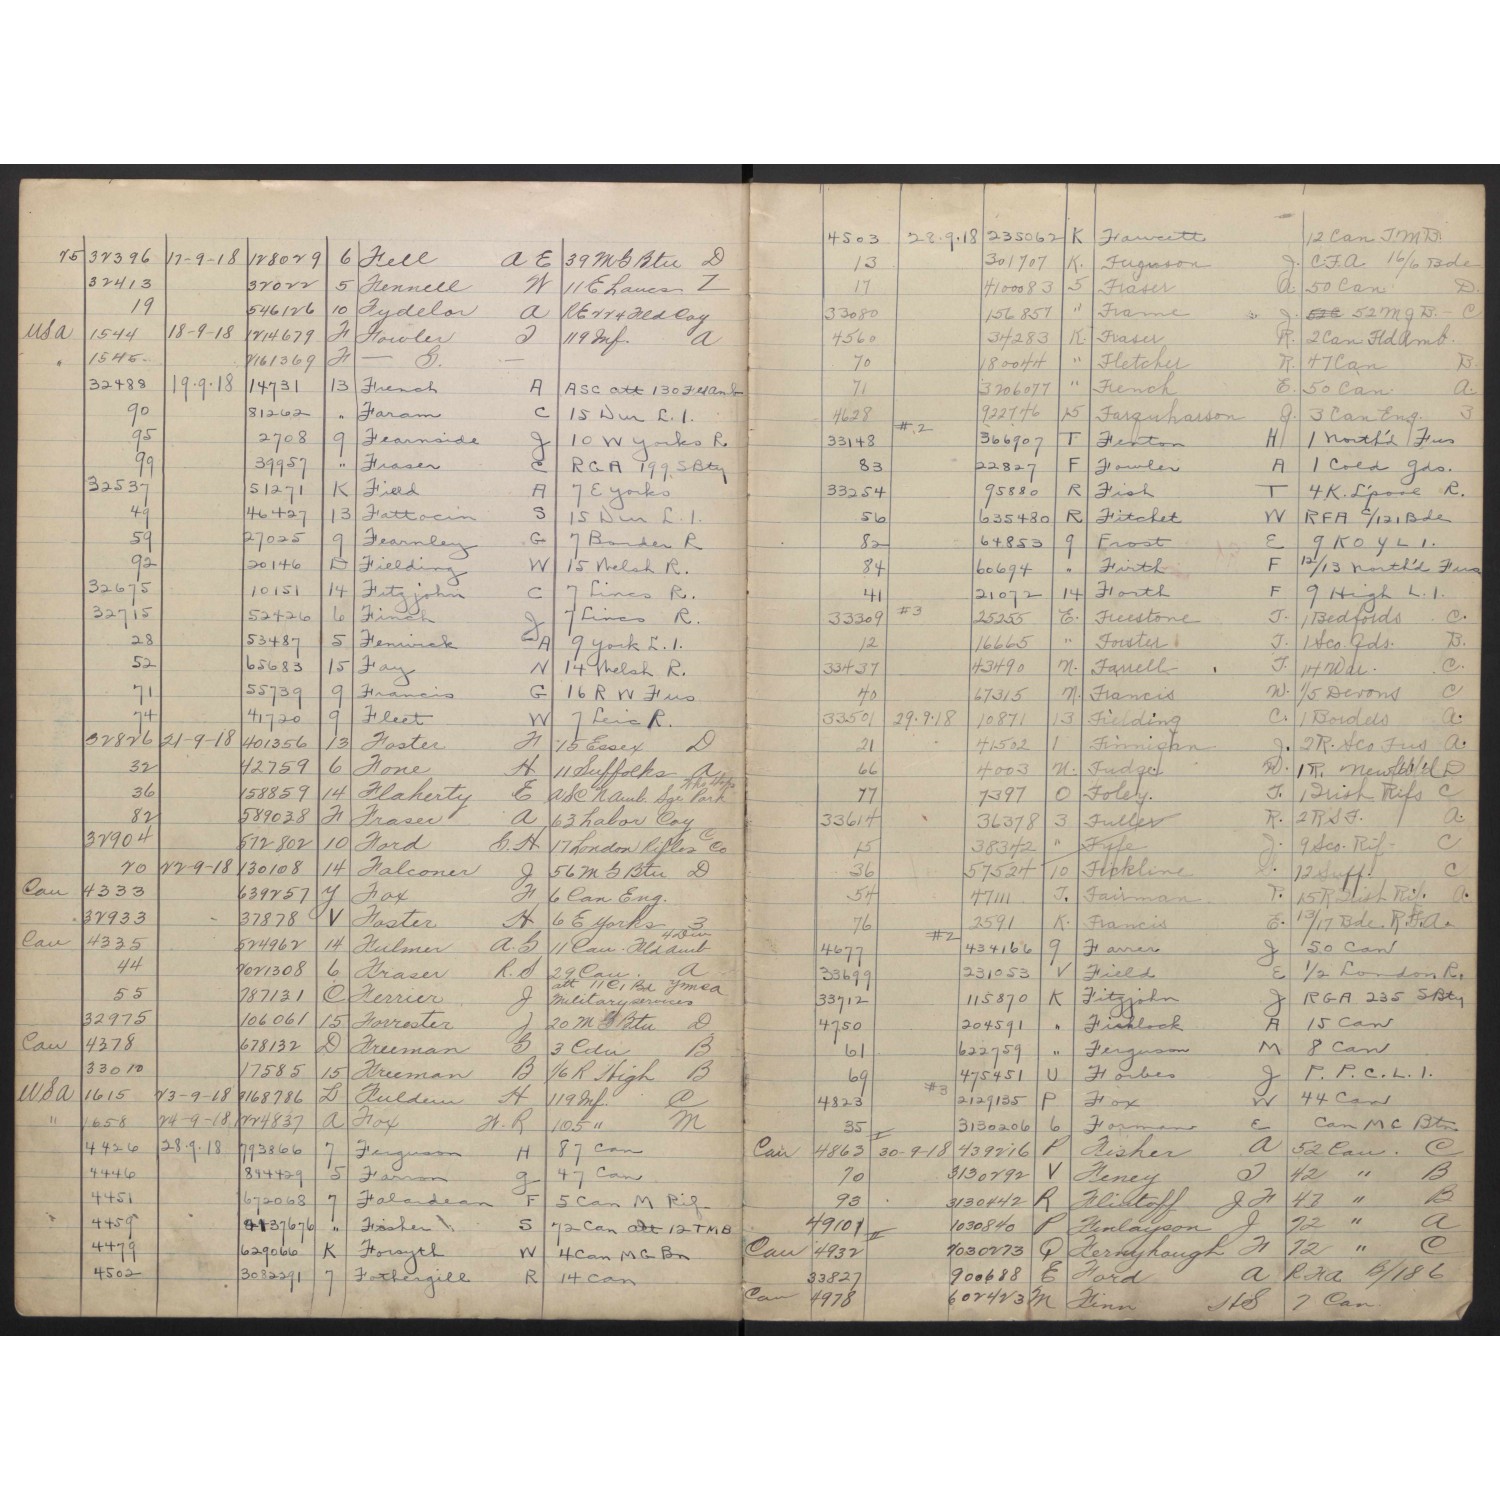 75 32396 17-9-18 128029 6 Fell A E 39 M G Btn D
32413 32022 5 Fennell W 11 E Lancs
19 546126 10 Fydelor A R E 224 Fld Coy
USA 1544 18-9-18 1214679 F Fowler J 119 Inf. A
1545 2161369 F — G. —
32488 19.9.18 14731 13 French A ASC att 130 Fd Amb
90 81262 " Faram C 15 Dur L.I.
95 2708 9 Fearnside J 10 W Yorks R.
99 39957 " Fraser C RGA 199 S Bty
32537 51271 K Field A 7 E Yorks
49 46427 13 Fattocin S 15 Dur L.I.
59 27025 9 Fearnley G 7 Border R
92 20146 D Fielding W 15 Welsh R.
32675 10151 14 Fitzjohn C 7 Lincs R.
32715 52426 6 Finch J 7 Lincs R.
28 53487 5 Fenwick G A 9 York L.I.
52 65683 15 Fay N 14 Welsh R.
71 55739 9 Francis G 16 R W Fus
74 41720 9 Fleet W 7 Leic R.
32826 21-9-18 401356 13 Foster F 15 Essex D
32 42759 6 Fone H 11 Suffolks A
36 158859 14 Flaherty E ASC N Amb. Sge Park
82 589038 F Fraser A 63 Labor Coy
32904 572802 10 Ford C.H 17 London Rifles C Co
20 22-9-18 130108 14 Falconer J 56 M G Btn D
Can 4333 639257 Y Fox F 6 Can Eng.
32933 37878 V Foster H 6 E Yorks 3
Can 4335 524962 14 Fulmer A.G 11 Can. Fld Amb 4 Div
44 2021308 6 Fraser R.S 29 Can. A
55 787131 C Ferrier J att 11 C I Bd YMCA Military services
32975 106061 15 Forrester J 20 M G Btn D
Can 4378 678132 D Freeman G 3 Cdn B
33010 17585 15 Freeman B 1/6 R High B
USA 1615 23-9-18 2168786 L Fuldem H 119 Inf. C
" 1658 24-9-18 1229837 A Fox H.R 105 " M
4426 28.9.18 793866 7 Ferguson H 87 Can
4446 844429 5 Farron G 47 Can
4451 672068 7 Falardean F 5 Can M Rif
4459 4137676 " Fisher S 72 Can att 12 TMB
4479 629066 K Forsyth W 4 Can MG Bn
4502 3082291 7 Fothergill R 14 Can
4503 28.9.18 235062 K Fawcett 12 Can T.M.B.
13 301707 K. Ferguson J. C.F.A 16/6 Bde
17 4100083 5 Fraser A 50 Can D.
33080 156857 " Frame J. 52 M G B. - C
4560 34283 K. Fraser R. 2 Can Fld Amb.
70 180044 " Fletcher R. 47 Can B.
71 3206077 " French E. 50 Can A.
4628 922746 15 Farquharson G. 3 Can Eng. 3
#2
33148 366907 T Fenton H 1 North'd Fus
83 22827 F Fowler A 1 Cold Gds.
33254 95880 R Fish T 4 K. L'pool R.
56 635480 R Fitchet W RFA C/121 Bde
82 64853 9 Frost E 9 K O Y L I.
84 60694 " Firth F 12/13 North'd Fus
41 21072 14 Forth F 9 High L.I.
33309 #3 25255 E. Freestone J. 1 Bedfords C.
12 16665 " Forster J. 1 Sco. Gds. B.
33437 43490 N. Farrell J. 14 War. C.
40 67315 N. Francis W. 1/5 Devons C
33501 29.9.18 10871 13 Fielding C. 1 Borders A.
21 41502 1 Finnigan J. 2 R. Sco Fus A.
66 4003 N. Fudge W. 1 R. Newfd'l'd D
77 7397 O Foley. J. 1 Irish Rifs C
33614 36378 3 Fuller R. 2 R S F. A.
15 38342 " Fyfe J. 9 Sco. Rif. C
36 57524 10 Fickline 12 Suff. C
54 47111 J. Fairman T. 15 R. Irish Rif. A.
76 2591 K. Francis E. 13/17 Bde. R.F.A.
#2
4677 434166 9 Farrer J 50 Can
33699 231053 V Field E 1/2 London R.
33712 115870 K Fitzjohn J RGA 235 S Bty
4750 204591 " Fishlock A 15 Can
61 622759 " Ferguson M 8 Can
69 475451 U Forbes J P.P.C.L.I.
#3
4823 2129135 P Fox W 44 Can
35 3130206 6 Forman E Can M C Btn
Can 4863 I 30-9-18 439216 P Fisher A 52 Can. C
70 3130292 V Feney J 42 " B
93 3130442 R Flintoff J F 47 " B
49101 1030840 P Finlayson J 72 " A
Can 4932 II 2030273 Q Fernyhough F 72 " C
33827 900688 E Ford A R.F.A B/186
Can 4978 602423 M Finn H S 7 Can